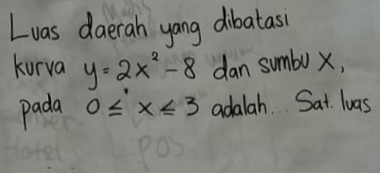 Luas daerah yang dibatasi
kurva y = 2x² - 8 dan sumbu X,
pada 0 ≤ x ≤ 3 adalah... Sat. luas